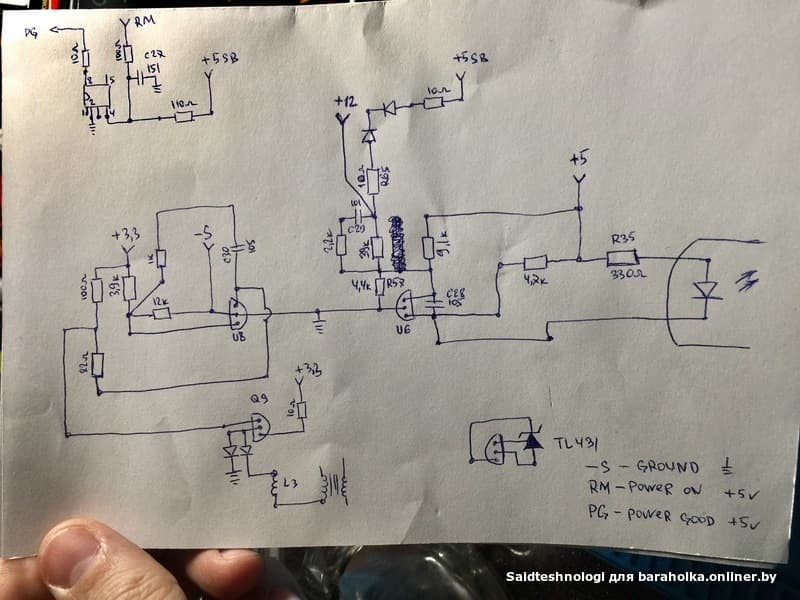 PG
RM
C27
151
+5SB
3
5
2
4
110Ω
+12
+5SB
10Ω
R65
101
C29
2,2k
9,1k
4,4k
R57
C28
105
U6
+5
4,2k
R35
330Ω
+3,3
-S
1k
C30
105
100Ω
3,9k
12k
U8
22Ω
Q9
+3,3
10Ω
L3
TL431
-S - GROUND
RM - POWER ON +5V
PG - POWER GOOD +5V
Saldteshnologi для baraholka.onliner.by